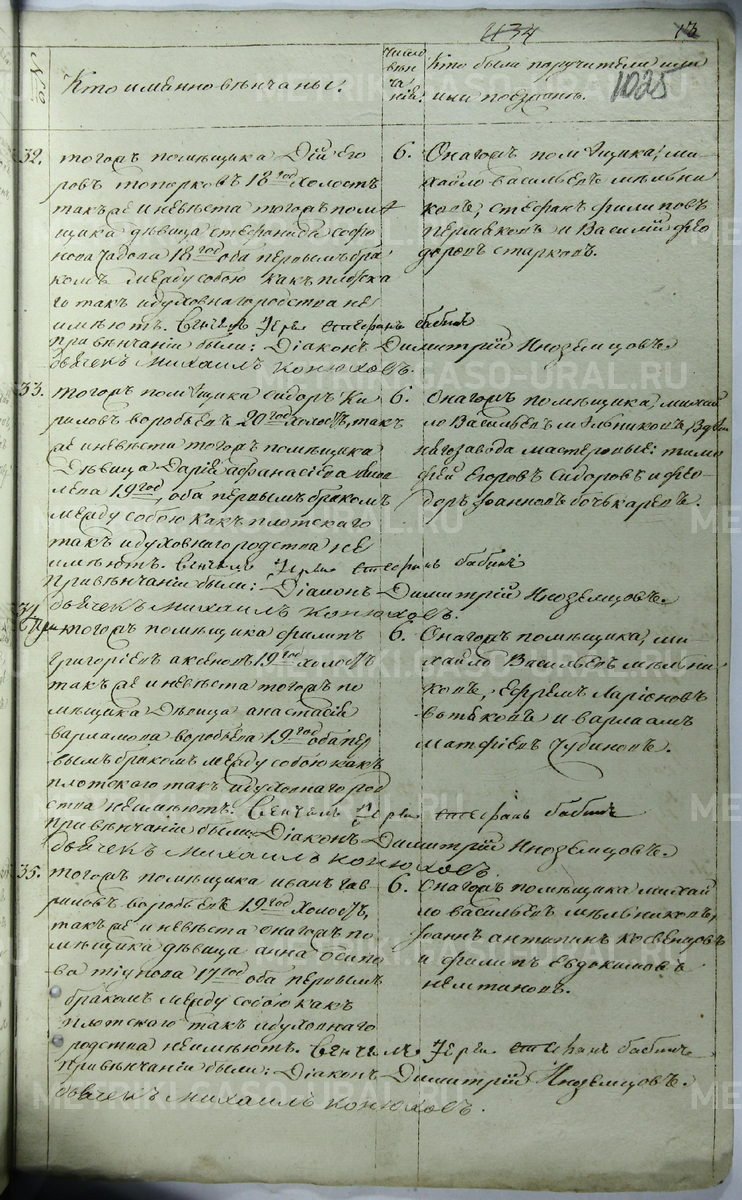 1134
13
1025
№
Кто именно вѣнчаны:
Число вѣн
ча
нія:
Кто были поручители или
или поѣзжане.
32.
тогожъ помѣщика Дій Его
ровъ топорковъ 18 год холостъ
такъ же и невѣста тогожъ помѣ
щика дѣвица стефанида софо
нова 18 год оба первымъ бра
комъ между собою какъ плотска
го такъ и духовнаго родства не
имѣютъ. Венчелъ Іерей стефанъ бабинъ
при вѣнчаніи были: Діаконъ Димитрій Иноземцовъ.
дьячекъ михаилъ конюховъ.
6.
Онагожъ помѣщика, ми
хайло васильевъ мельни
ковъ, стефанъ филиповъ
пермяковъ и Василій фео
доровъ старковъ.
33.
тогожъ помѣщика сидоръ Ки
риловъ воробьевъ 20 год холостъ, такъ
же и невѣста тогожъ помѣщика
Дѣвица Дарія афанасіева
19 год, оба первымъ бракомъ
между собою какъ плотскаго
такъ и духовнаго родства не
имѣютъ. Венчелъ Іерей стефанъ бабинъ
при вѣнчаніи были: Діаконъ Димитрій Иноземцовъ.
дьячекъ михаилъ конюховъ.
6.
онагожъ помѣщика, михай
ло Васильевъ мѣльниковъ,
завода мастеровые: тимо
фей егоровъ сидоровъ и фео
доръ Іоанновъ бочкаревъ.
34
тогожъ помѣщика филипъ
григоріевъ аксеновъ 19 год холостъ
такъ же и невѣста тогожъ по
мѣщика Дѣвица анастасія
варламова воробьева 19 год оба пер
вымъ бракомъ между собою какъ
плотскаго такъ и духовнаго род
ства неимѣютъ. Венчалъ Іерей стефанъ бабинъ
при вѣнчаніи были: Діаконъ Димитрій Иноземцовъ.
дьячекъ михаилъ конюховъ.
6.
Онагожъ помѣщика, ми
хайло Васильевъ мѣльни
ковъ, ефремъ Ларіоновъ
вотяковъ и варлаамъ
матфіевъ чубиновъ.
35.
тогожъ помѣщика иванъ гав
риловъ воробьевъ 19 год холостъ,
такъ же и невѣста онагожъ по
мѣщика дѣвица анна осипо
ва тіунова 17 год оба первымъ
бракомъ между собою какъ
плотскаго такъ и духовнаго
родства неимѣютъ. Венчелъ Іерей стефанъ бабинъ
при вѣнчаніи были: Діаконъ Димитрій Иноземцовъ.
дьячекъ михаилъ конюховъ.
6.
онагожъ помѣщика михай
ло васильевъ мѣльниковъ,
Іоаннъ антипинъ
и филипъ евдокимовъ
нѣмтиновъ.
METRIKI.GASO-URAL.RU